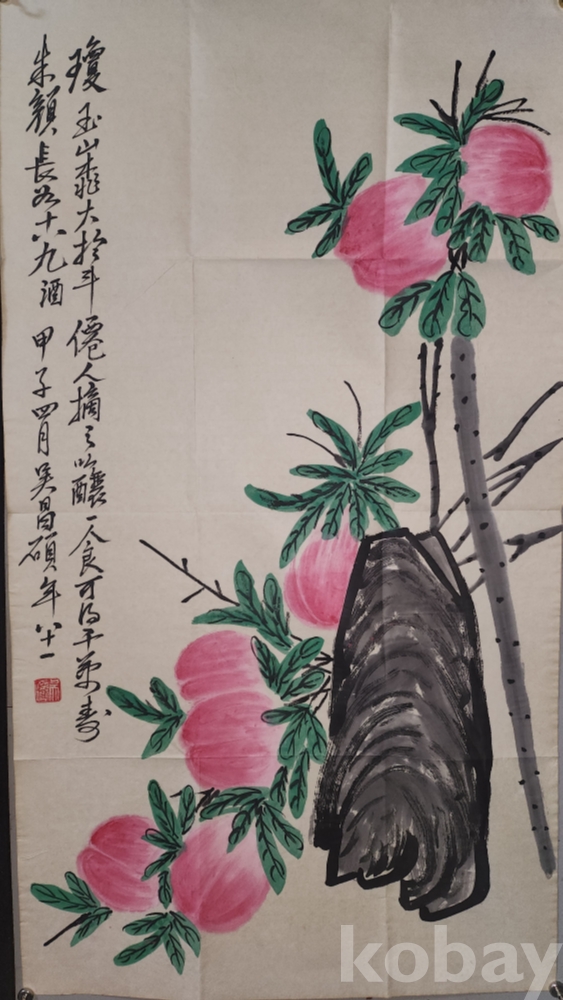 瓊玉山桃大於斗僊人摘之以釀一食可得千萬壽
朱顏長如十八九酒 甲子四月吳昌碩年八十一
kobay